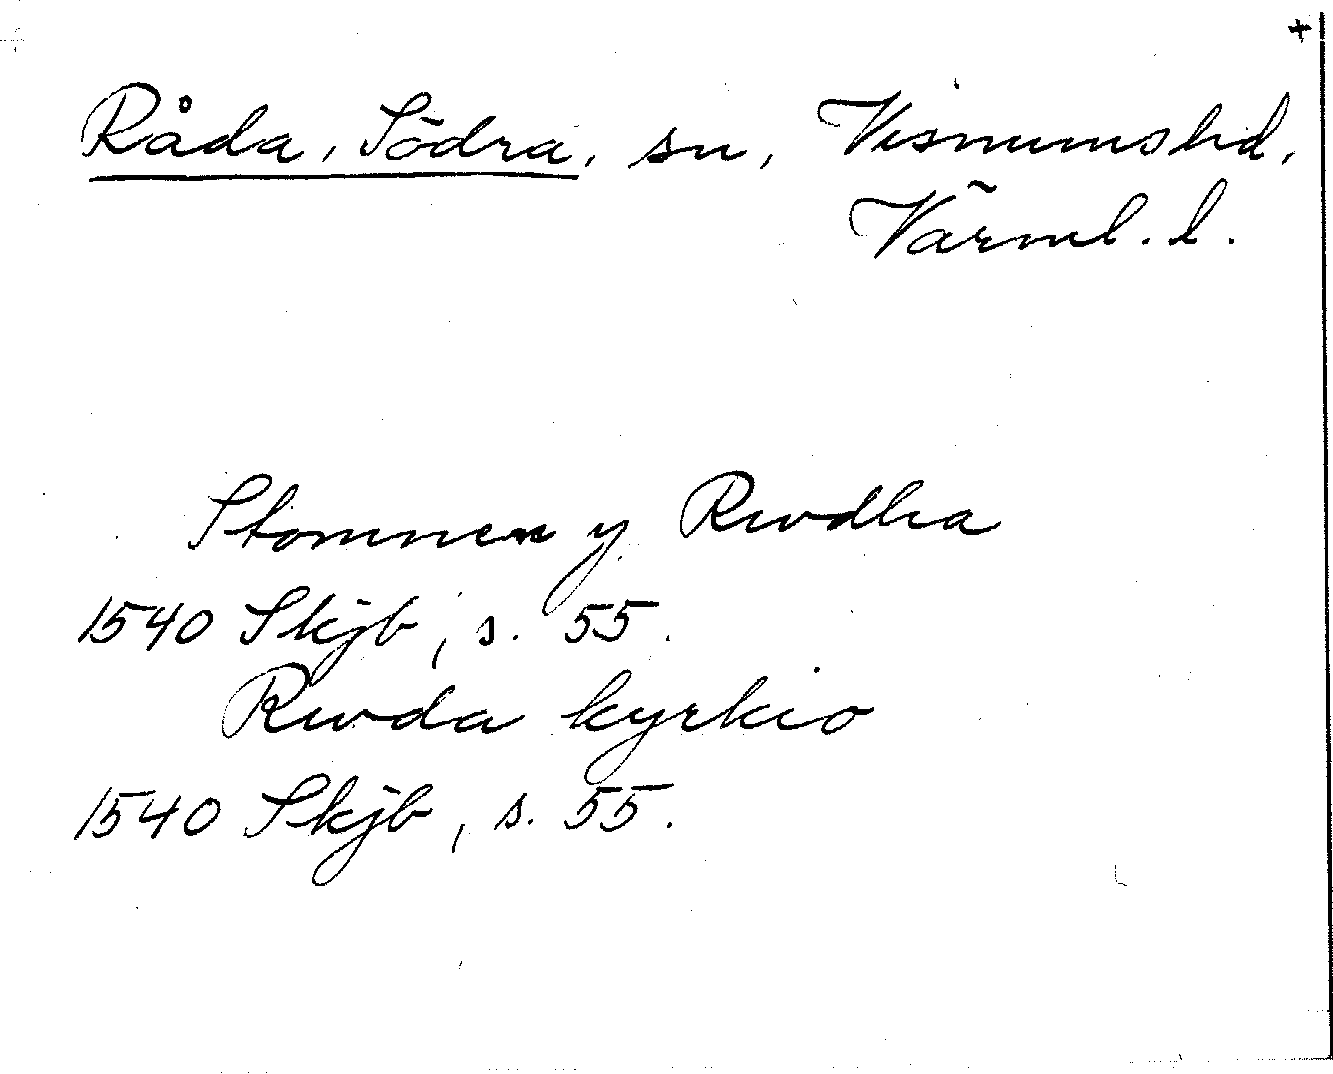 +
Råda, Södra, sn, Visnums hd,
Värml. l.
Stommen y Rwdha
1540 Skjb, s. 55.
Rwda kyrkio
1540 Skjb, s. 55.